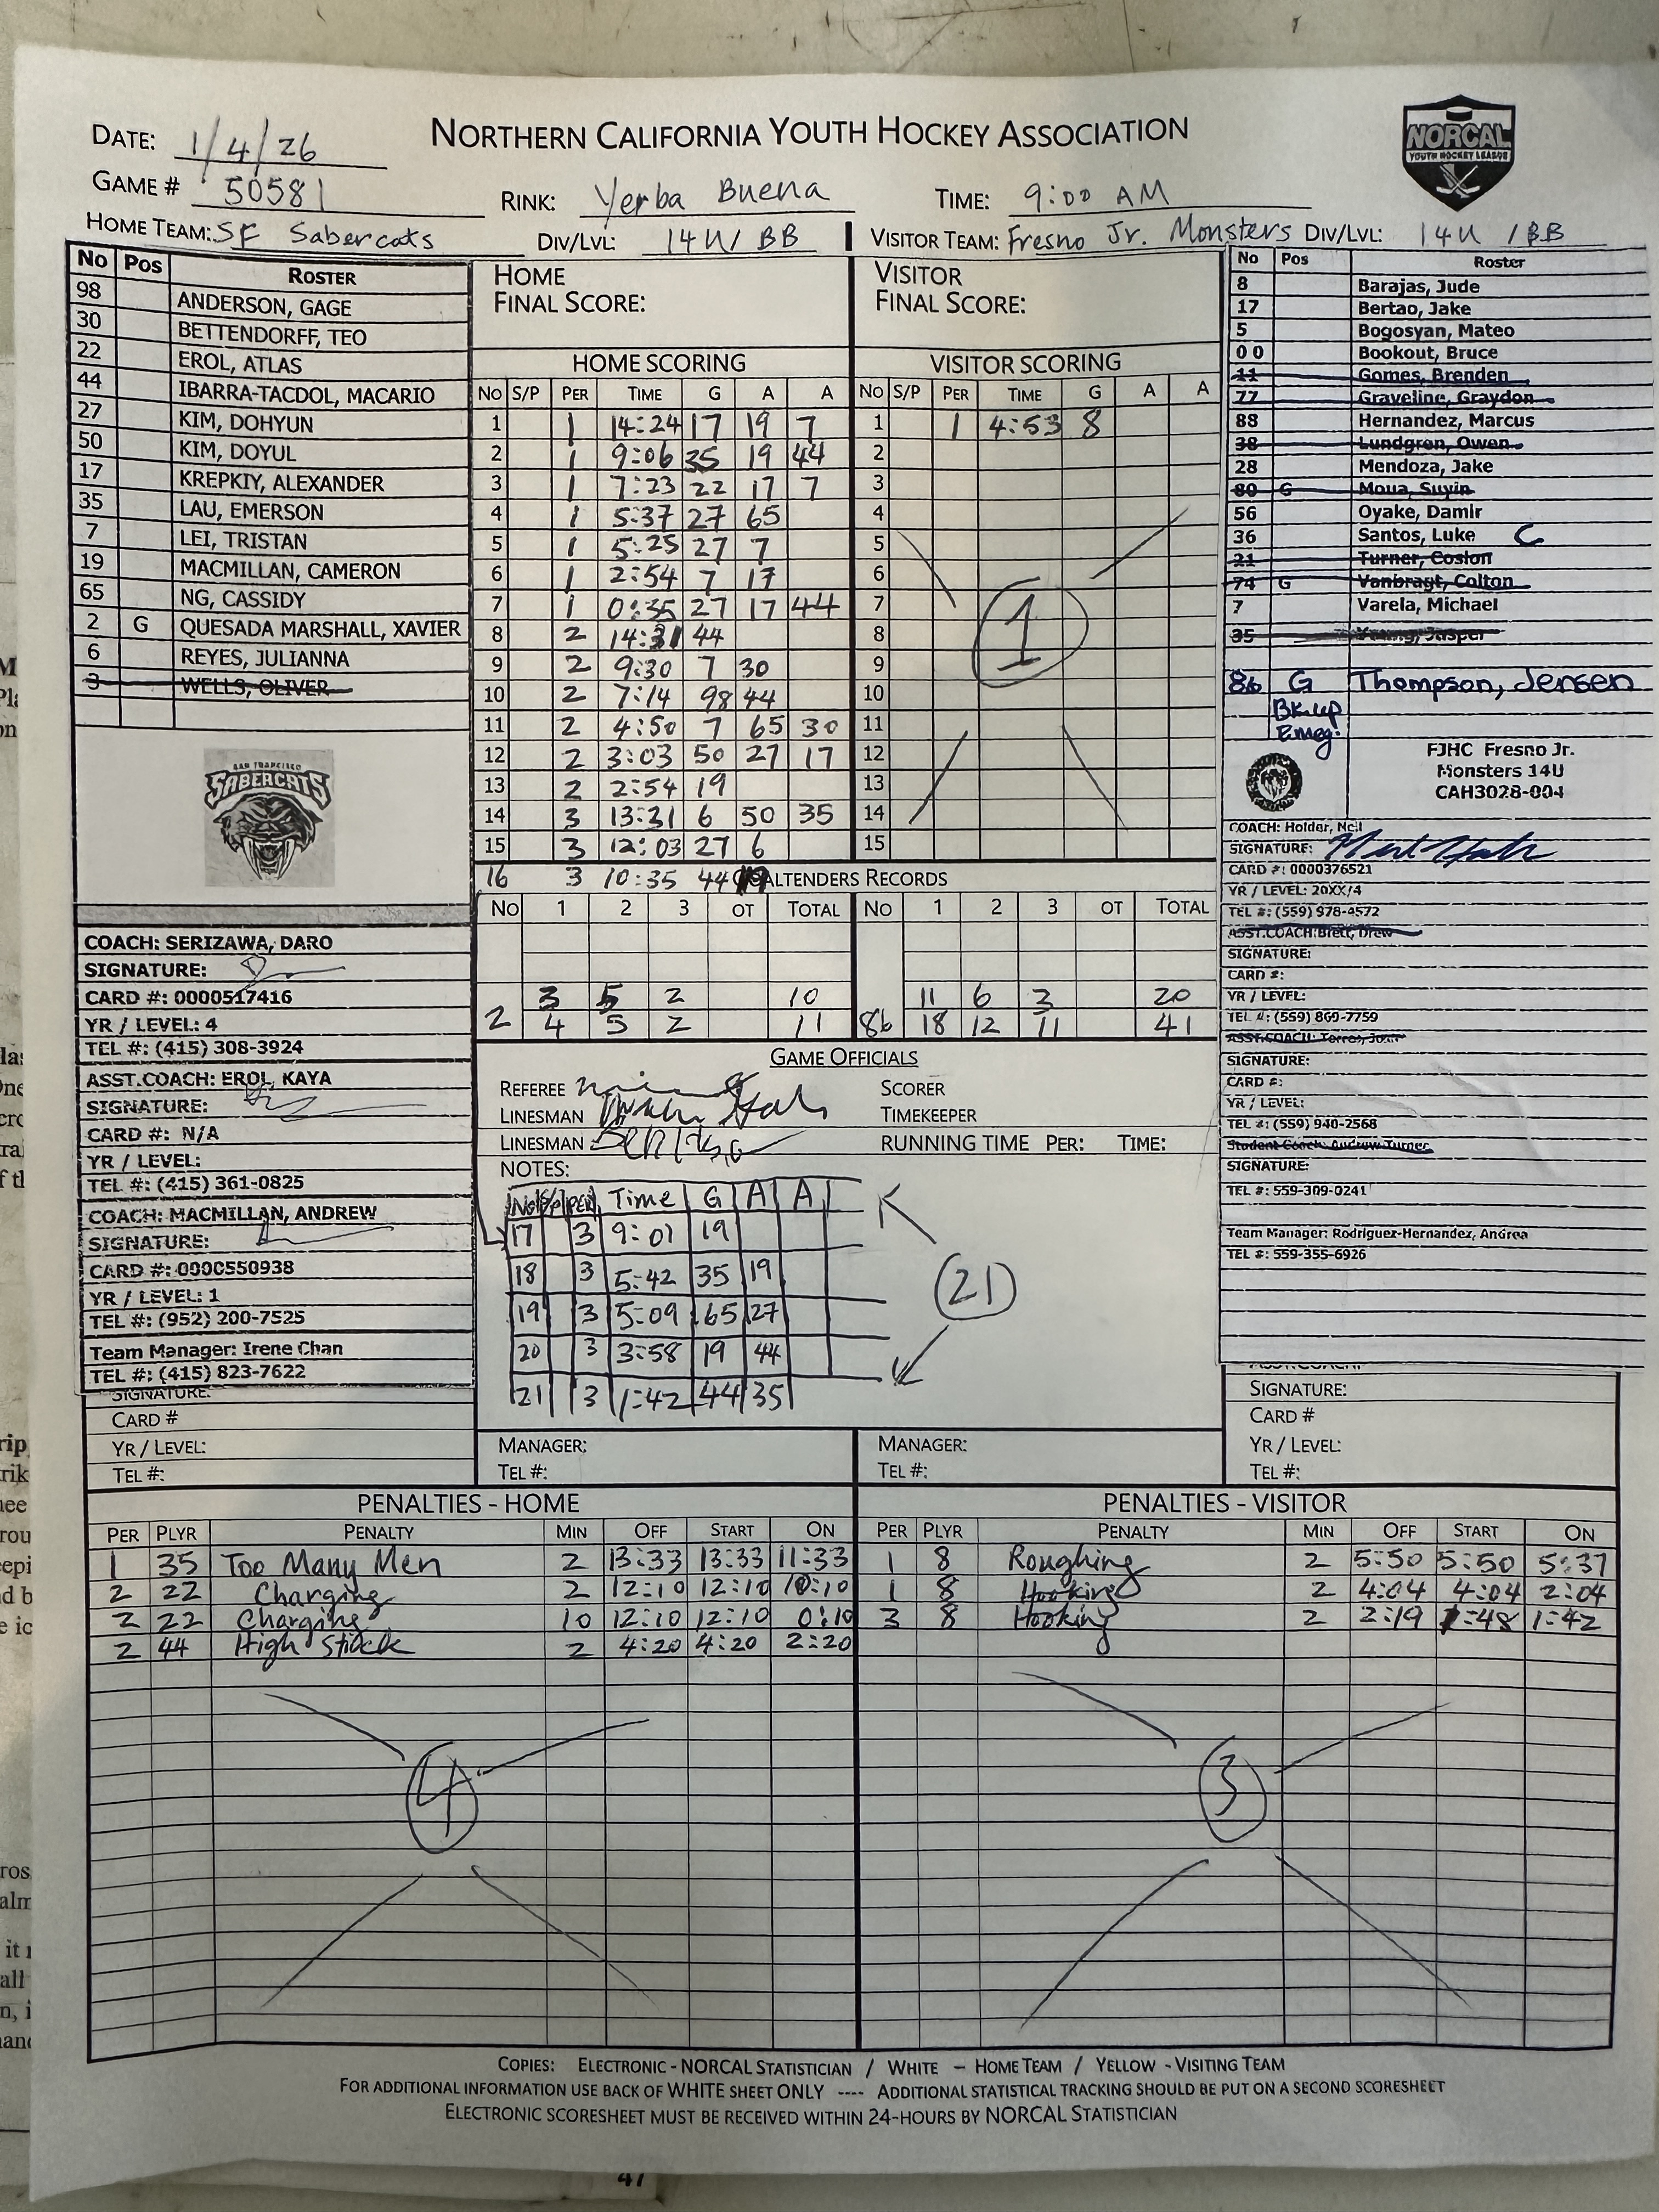 NORTHERN CALIFORNIA YOUTH HOCKEY ASSOCIATION
NORCAL
YOUTH HOCKEY LEAGUE
DATE: 1/4/26
GAME # 50581
RINK: Yerba Buena
TIME: 9:00 AM
HOME TEAM: SF Sabercats
DIV/LVL: 14U/BB
VISITOR TEAM: Fresno Jr. Monsters DIV/LVL: 14U /BB
No Pos ROSTER
98 ANDERSON, GAGE
30 BETTENDORFF, TEO
22 EROL, ATLAS
44 IBARRA-TACDOL, MACARIO
27 KIM, DOHYUN
50 KIM, DOYUL
17 KREPKIY, ALEXANDER
35 LAU, EMERSON
7 LEI, TRISTAN
19 MACMILLAN, CAMERON
65 NG, CASSIDY
2 G QUESADA MARSHALL, XAVIER
6 REYES, JULIANNA
3 WELLS, OLIVER
SAN FRANCISCO
SABERCATS
COACH: SERIZAWA, DARO
SIGNATURE:
CARD #: 0000517416
YR / LEVEL: 4
TEL #: (415) 308-3924
ASST.COACH: EROL, KAYA
SIGNATURE:
CARD #: N/A
YR / LEVEL:
TEL #: (415) 361-0825
COACH: MACMILLAN, ANDREW
SIGNATURE:
CARD #: 0000550938
YR / LEVEL: 1
TEL #: (952) 200-7525
Team Manager: Irene Chan
TEL #: (415) 823-7622
SIGNATURE:
CARD #
YR / LEVEL:
TEL #:
HOME
FINAL SCORE:
HOME SCORING
NO S/P PER TIME G A A
1 1 14:24 17 19 7
2 1 9:06 35 19 44
3 1 7:23 22 17 7
4 1 5:37 27 65
5 1 5:25 27 7
6 1 2:54 7 17
7 1 0:35 27 17 44
8 2 14:31 44
9 2 9:30 7 30
10 2 7:14 98 44
11 2 4:50 7 65 30
12 2 3:03 50 27 17
13 2 2:54 19
14 3 13:31 6 50 35
15 3 12:03 27 6
16 3 10:35 44
VISITOR
FINAL SCORE:
VISITOR SCORING
NO S/P PER TIME G A A
1 1 4:53 8
2
3
4
5
6
7
8
9
10
11
12
13
14
15
1
GOALTENDERS RECORDS
NO 1 2 3 OT TOTAL
3 5 2 10
2 4 5 2 11
NO 1 2 3 OT TOTAL
11 6 3 20
86 18 12 11 41
GAME OFFICIALS
REFEREE
SCORER
LINESMAN
TIMEKEEPER
LINESMAN
RUNNING TIME PER: TIME:
NOTES:
No S/P PER Time G A A
17 3 9:01 19
18 3 5:42 35 19
19 3 5:09 65 27
20 3 3:58 19 44
21 3 1:42 44 35
21
MANAGER:
TEL #:
MANAGER:
TEL #:
No Pos Roster
8 Barajas, Jude
17 Bertao, Jake
5 Bogosyan, Mateo
00 Bookout, Bruce
11 Gomes, Brenden
77 Graveline, Graydon
88 Hernandez, Marcus
38 Lundgren, Owen
28 Mendoza, Jake
80 G Moua, Suyin
56 Oyake, Damir
36 Santos, Luke C
21 Turner, Coslon
74 G Vanbragt, Colton
7 Varela, Michael
35 Young, Jasper
86 G Thompson, Jensen
Bk-up
Emeg.
FJHC Fresno Jr.
Monsters 14U
CAH3028-004
COACH: Holder, Neil
SIGNATURE:
CARD #: 0000376521
YR / LEVEL: 20XX/4
TEL #: (559) 978-4572
ASST.COACH: Brett, Drew
SIGNATURE:
CARD #:
YR / LEVEL:
TEL #: (559) 869-7759
ASST.COACH: Torres, Juan
SIGNATURE:
CARD #:
YR / LEVEL:
TEL #: (559) 940-2568
Student Coach: Andrew Turner
SIGNATURE:
TEL #: 559-309-0241
Team Manager: Rodriguez-Hernandez, Andrea
TEL #: 559-355-6926
SIGNATURE:
CARD #
YR / LEVEL:
TEL #:
PENALTIES - HOME
PER PLYR PENALTY MIN OFF START ON
1 35 Too Many Men 2 13:33 13:33 11:33
2 22 Charging 2 12:10 12:10 10:10
2 22 Charging 10 12:10 12:10 0:10
2 44 High Stick 2 4:20 4:20 2:20
4
PENALTIES - VISITOR
PER PLYR PENALTY MIN OFF START ON
1 8 Roughing 2 5:50 5:50 5:37
1 8 Hooking 2 4:04 4:04 2:04
3 8 Hooking 2 2:19 1:48 1:42
3
COPIES: ELECTRONIC - NORCAL STATISTICIAN / WHITE – HOME TEAM / YELLOW - VISITING TEAM
FOR ADDITIONAL INFORMATION USE BACK OF WHITE SHEET ONLY ---- ADDITIONAL STATISTICAL TRACKING SHOULD BE PUT ON A SECOND SCORESHEET
ELECTRONIC SCORESHEET MUST BE RECEIVED WITHIN 24-HOURS BY NORCAL STATISTICIAN
47